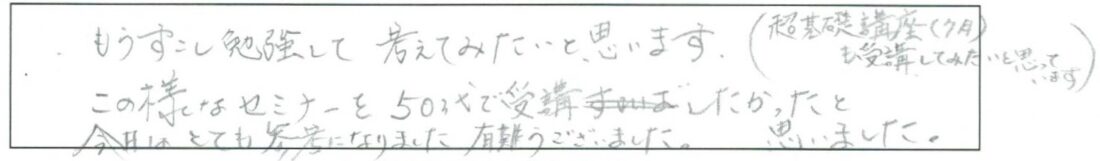 もうすこし勉強して 考えてみたいと思います.
(超基礎講座(7月)
も受講してみたいと思って
います)
この様なセミナーを50才代で受講したかったと
思いました。
今日はとても参考になりました 有難うございました。